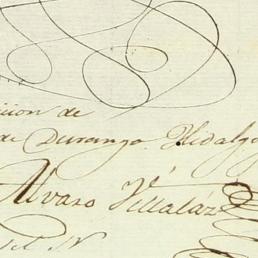 icion de
de Durango Hidalgo
Alvaro Villaláz
del N